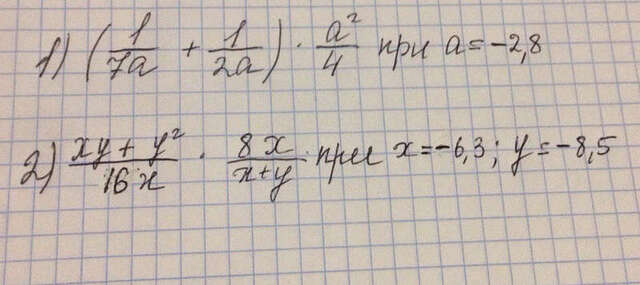 1) (1/7a + 1/2a) · a²/4 при a = -2,8
2) xy + y²/16x · 8x/x+y при x = -6,3; y = -8,5